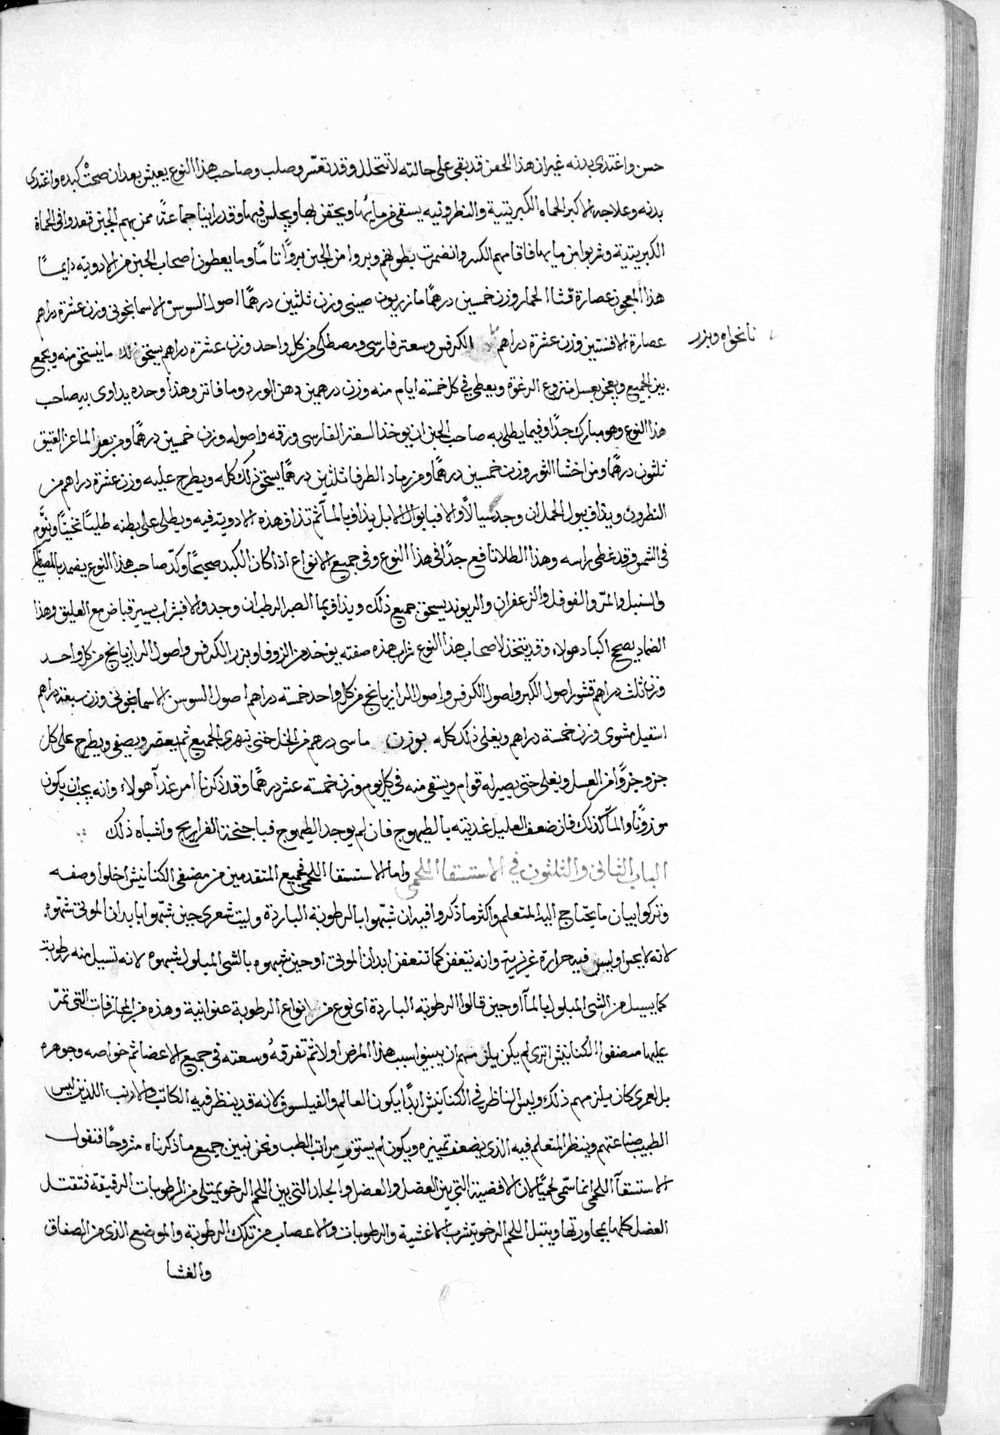 حسن واغتدى بدنه غير ان هذا الحقن قد بقى على حالته لا تتحلل وقد تعسّر وصلب وصاحب هذا النوع يعيش بعد ان صحت كبده واغتدى
بدنه وعلاجه الاكبر الحماه الكبريتية والنطرونيه يسقى من مايها ويحقن بها ويجلس فيها وقد راينا جماعة ممن بهم الجبن قعدوا فى الحماة
الكبريتية وشربوا من مايها فاقامهم الكسر وانضمرت بطونهم وبروا من الجبن بروًا تامًا ومما يعطون اصحاب الجبن من الادوية دايمًا
هذا المعجون عصارة قثا الحمار وزن خمسين درهمًا مازريون صينى وزن ثلثين درهمًا اصول السوس الاسمانجونى وزن عشرة دراهم
عصارة الافسنتين وزن عشرة دراهم الكرفس وسعتر فارسى ومصطكى من كل واحد وزن عشرة دراهم يستحق ذلك ما يستحق منه ويجمع
نانخواه وبزر
بين الجميع ويعجن بعسل منزوع الرغوة ويعطى فى كل خمسة ايام منه وزن درهمين دهن الورد وما فاتر وهذا وحده يداوى به صاحب
هذا النوع وهو مبارك جدًا وفيما يطلى به صاحب الجبن ان يوخذ السعتر الفارسى ورقه واصوله وزن خمسين درهمًا ومن بعر الماعز العتيق
ثلثون درهمًا ومن اخثا الثور وزن خمسين درهمًا ومن رماد الطرفا ثلثين درهمًا يستحق ذلك كله ويطرح عليه وزن عشرة دراهم من
النطرون ويذاف ببول الحملان وجد سيالاً والا فبابوال الابل يذاف بالماء ثم تذاف هذه الادوية فيه ويطلى على بطنه طليًا ثخينًا ونوّم
فى الشمس وقد غطى راسه وهذا الطلا نافع جدًا فى هذا النوع وفى جميع الانواع اذا كان الكبد صحيحًا وكبد صاحب هذا النوع يضمد بالمصطكى
والسنبل والمرّ والفوفل والزعفران والريوند يسحق جميع ذلك ويذاف بما الصبر الرطب ان وجد والا فبشراب يسير قباض مع العليق وهذا
الضماد يصح اكباد هولاء وقد يتخذ لاصحاب هذا النوع شراب هذه صفته يوخذ من الزوفا وبزر الكرفس واصول الرازيانج من كل واحد
وزن ثلث دراهم قشور اصول الكبر واصول الكرفس واصول الرازيانج من كل واحد خمسة دراهم اصول السوس الاسمانجونى وزن سبعة دراهم
اسقيل مشوى وزن خمسة دراهم ويغلى ذلك كله بوزن ماسى درهم من الخل حتى يتهرى الجميع ثم يعصر ويصفى ويطرح على كل
جزو جزوًا من العسل ويغلى حتى يصير له قوام ويسقى منه فى كل يوم وزن خمسة عشر درهمًا وقد ذكرنا امر غداء هولاء وانه يجب ان يكون
موزونًا والماء كذلك فان ضعف العليل غديته بالطيهوج فان لم يوجد الطيهوج فباجنحة الفراريج واشباه ذلك
الباب الثانى والثلثون فى الاستسقا اللحمى واما الاستسقا اللحمى فجميع المتقدمين من مصنفى الكنانيش اخلوا وصفه
وتركوا بيان ما يحتاج اليه المتعلم واكثر ما ذكروا فيه ان شبّهوا بالرطوبة الباردة وليت شعرى حين شبّهوا بابدان الموتى شبّهوه
لانه لا يحر اوليس فيه حرارة غريزية وانه تتعفن كما تتعفن ابدان الموتى او حين شبهوه بالشى المبلول شبهوه لانه تسيل منه رطوبة
كما يسيل من الشى المبلول بالماء او حين قالوا الرطوبة الباردة اى نوع من انواع الرطوبة عنوانية وهذه من المجازفات التى تمرّ
عليها مصنفوا الكنانيش اترى لم يكن يلزمهم ان يبينوا سبب هذا المرض اولا ثم تفرقه وسعته فى جميع الاعضا ثم خواصه وجوهره
بل لعمرى كان يلزمهم ذلك وليس الناظر فى الكنانيش ابدًا يكون العالم والفيلسوف لانه قد ينظر فيه الكاتب والاديب اللذين ليس
الطب صناعتهم وينظر المتعلم فيه الذى يضعف تميزه ويكون لم يستوف مراتب الطب ونحن نبين جميع ما ذكرناه مشروحًا فنقول
الاستسقاء اللحمى انما سمّى لحميًا لان الافضية التى بين العضل والعضل والجلد التى بين اللحم الرخو يمتلى من الرطوبات الرقيقة فتقتل
العضل كلها بمجاورتها ويتبل اللحم الرخو بتشرب الاغشية والرطوبات والاعصاب من تلك الرطوبة والموضع الذى من الصفاق
والغشا